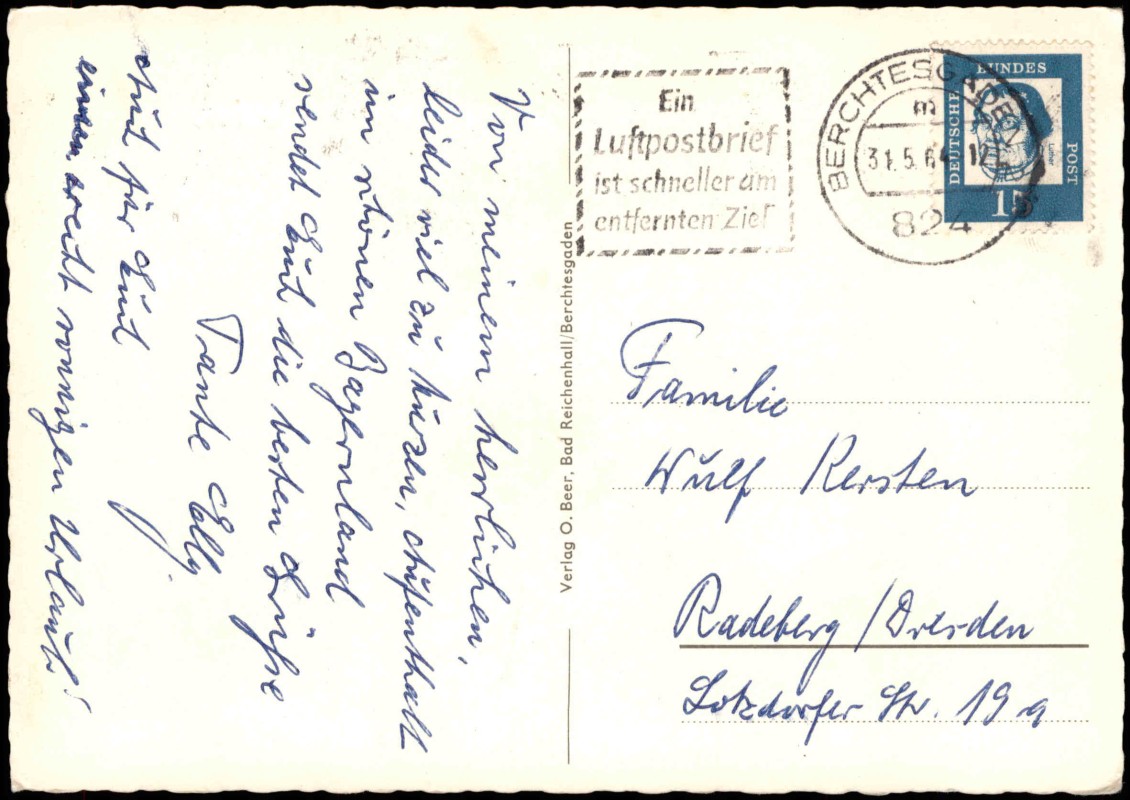 Von meinem herlichen,
leider viel zu kurzen, Aufenthalt
im schönen Bayernland
sendet Euch die besten Grüße
Tante Elly.
Auch für Euch
einen recht sonnigen Urlaub!
Verlag O. Beer, Bad Reichenhall/Berchtesgaden
Ein
Luftpostbrief
ist schneller am
entfernten Ziel
BERCHTESGADEN
m
31.5.64
824
DEUTSCHE
BUNDES
POST
15
Familie
Wulf Kersten
Radeberg / Dresden
Lotzdorfer Str. 19 a